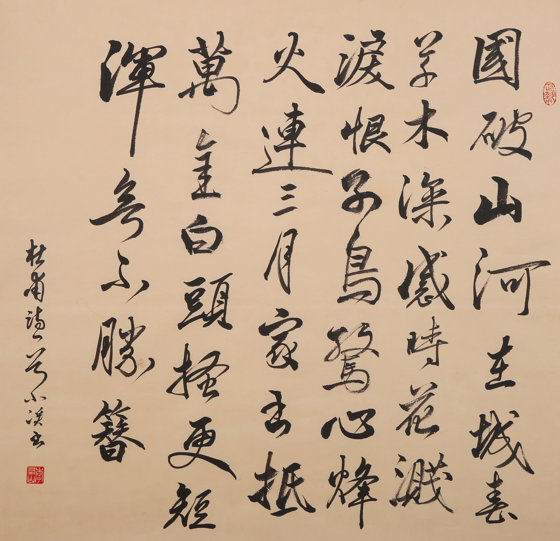 國破山河在城春
草木深感時花濺
淚恨別鳥驚心烽
火連三月家書抵
萬金白頭搔更短
渾欲不勝簪
杜甫詩一首小溪書